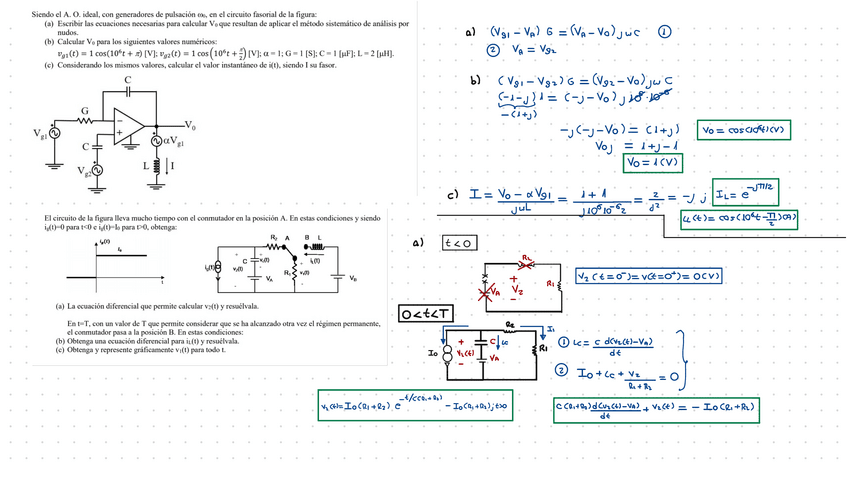 Siendo el A. O. ideal, con generadores de pulsación ω₀, en el circuito fasorial de la figura:
(a) Escribir las ecuaciones necesarias para calcular V₀ que resultan de aplicar el método sistemático de análisis por
nudos.
(b) Calcular V₀ para los siguientes valores numéricos:
v_g1(t) = 1 cos(10⁶t + π) [V]; v_g2(t) = 1 cos(10⁶t + π/2) [V]; α = 1; G = 1 [S]; C = 1 [μF]; L = 2 [μH].
(c) Considerando los mismos valores, calcular el valor instantáneo de i(t), siendo I su fasor.
C
G
V_g1
-
+
V₀
C
αV_g1
V_g2
L
I
a) (Vg1 - VA) G = (VA - V0) jωC ①
② VA = Vg2
b) (Vg1 - Vg2) G = (Vg2 - V0) jω C
(-1-j) 1 = (-j - V0) j 10⁶ · 10⁻⁶
-(1+j)
-j(-j-V0) = (1+j)
V0j = 1+j-1
V0 = 1 (V)
V0 = cos(10⁶t) (V)
c) I = (V0 - αVg1)/(jωL) = (1+1)/(j10⁶10⁻⁶2) = 2/j² = -j j
IL = e^(-jπ/2)
iL(t) = cos(10⁶t - π/2) (A)
El circuito de la figura lleva mucho tiempo con el conmutador en la posición A. En estas condiciones y siendo
i_g(t)=0 para t<0 e i_g(t)=I₀ para t>0, obtenga:
i_g(t)
I₀
t
R₂ A B L
i_g(t)
C
v_c(t)
v₂(t)
V_A
R₁
v₁(t)
i_L(t)
V_B
(a) La ecuación diferencial que permite calcular v₂(t) y resuélvala.
En t=T, con un valor de T que permite considerar que se ha alcanzado otra vez el régimen permanente,
el conmutador pasa a la posición B. En estas condiciones:
(b) Obtenga una ecuación diferencial para i_L(t) y resuélvala.
(c) Obtenga y represente gráficamente v₁(t) para todo t.
a) t<0
R2
+
VA V2 R1
-
V2 (t=0⁻) = V(t=0⁺) = 0 (V)
0<t<T
R2 I1
+
I0 V2(t) C ic R1
-
VA
① ic = C d(V2(t)-VA)/dt
② I0 + ic + V2/(R1+R2) = 0
V2(t) = I0(R1+R2) e^(-t/C(R1+R2)) - I0(R1+R2); t>0
C(R1+R2) d(V2(t)-VA)/dt + V2(t) = - I0(R1+R2)